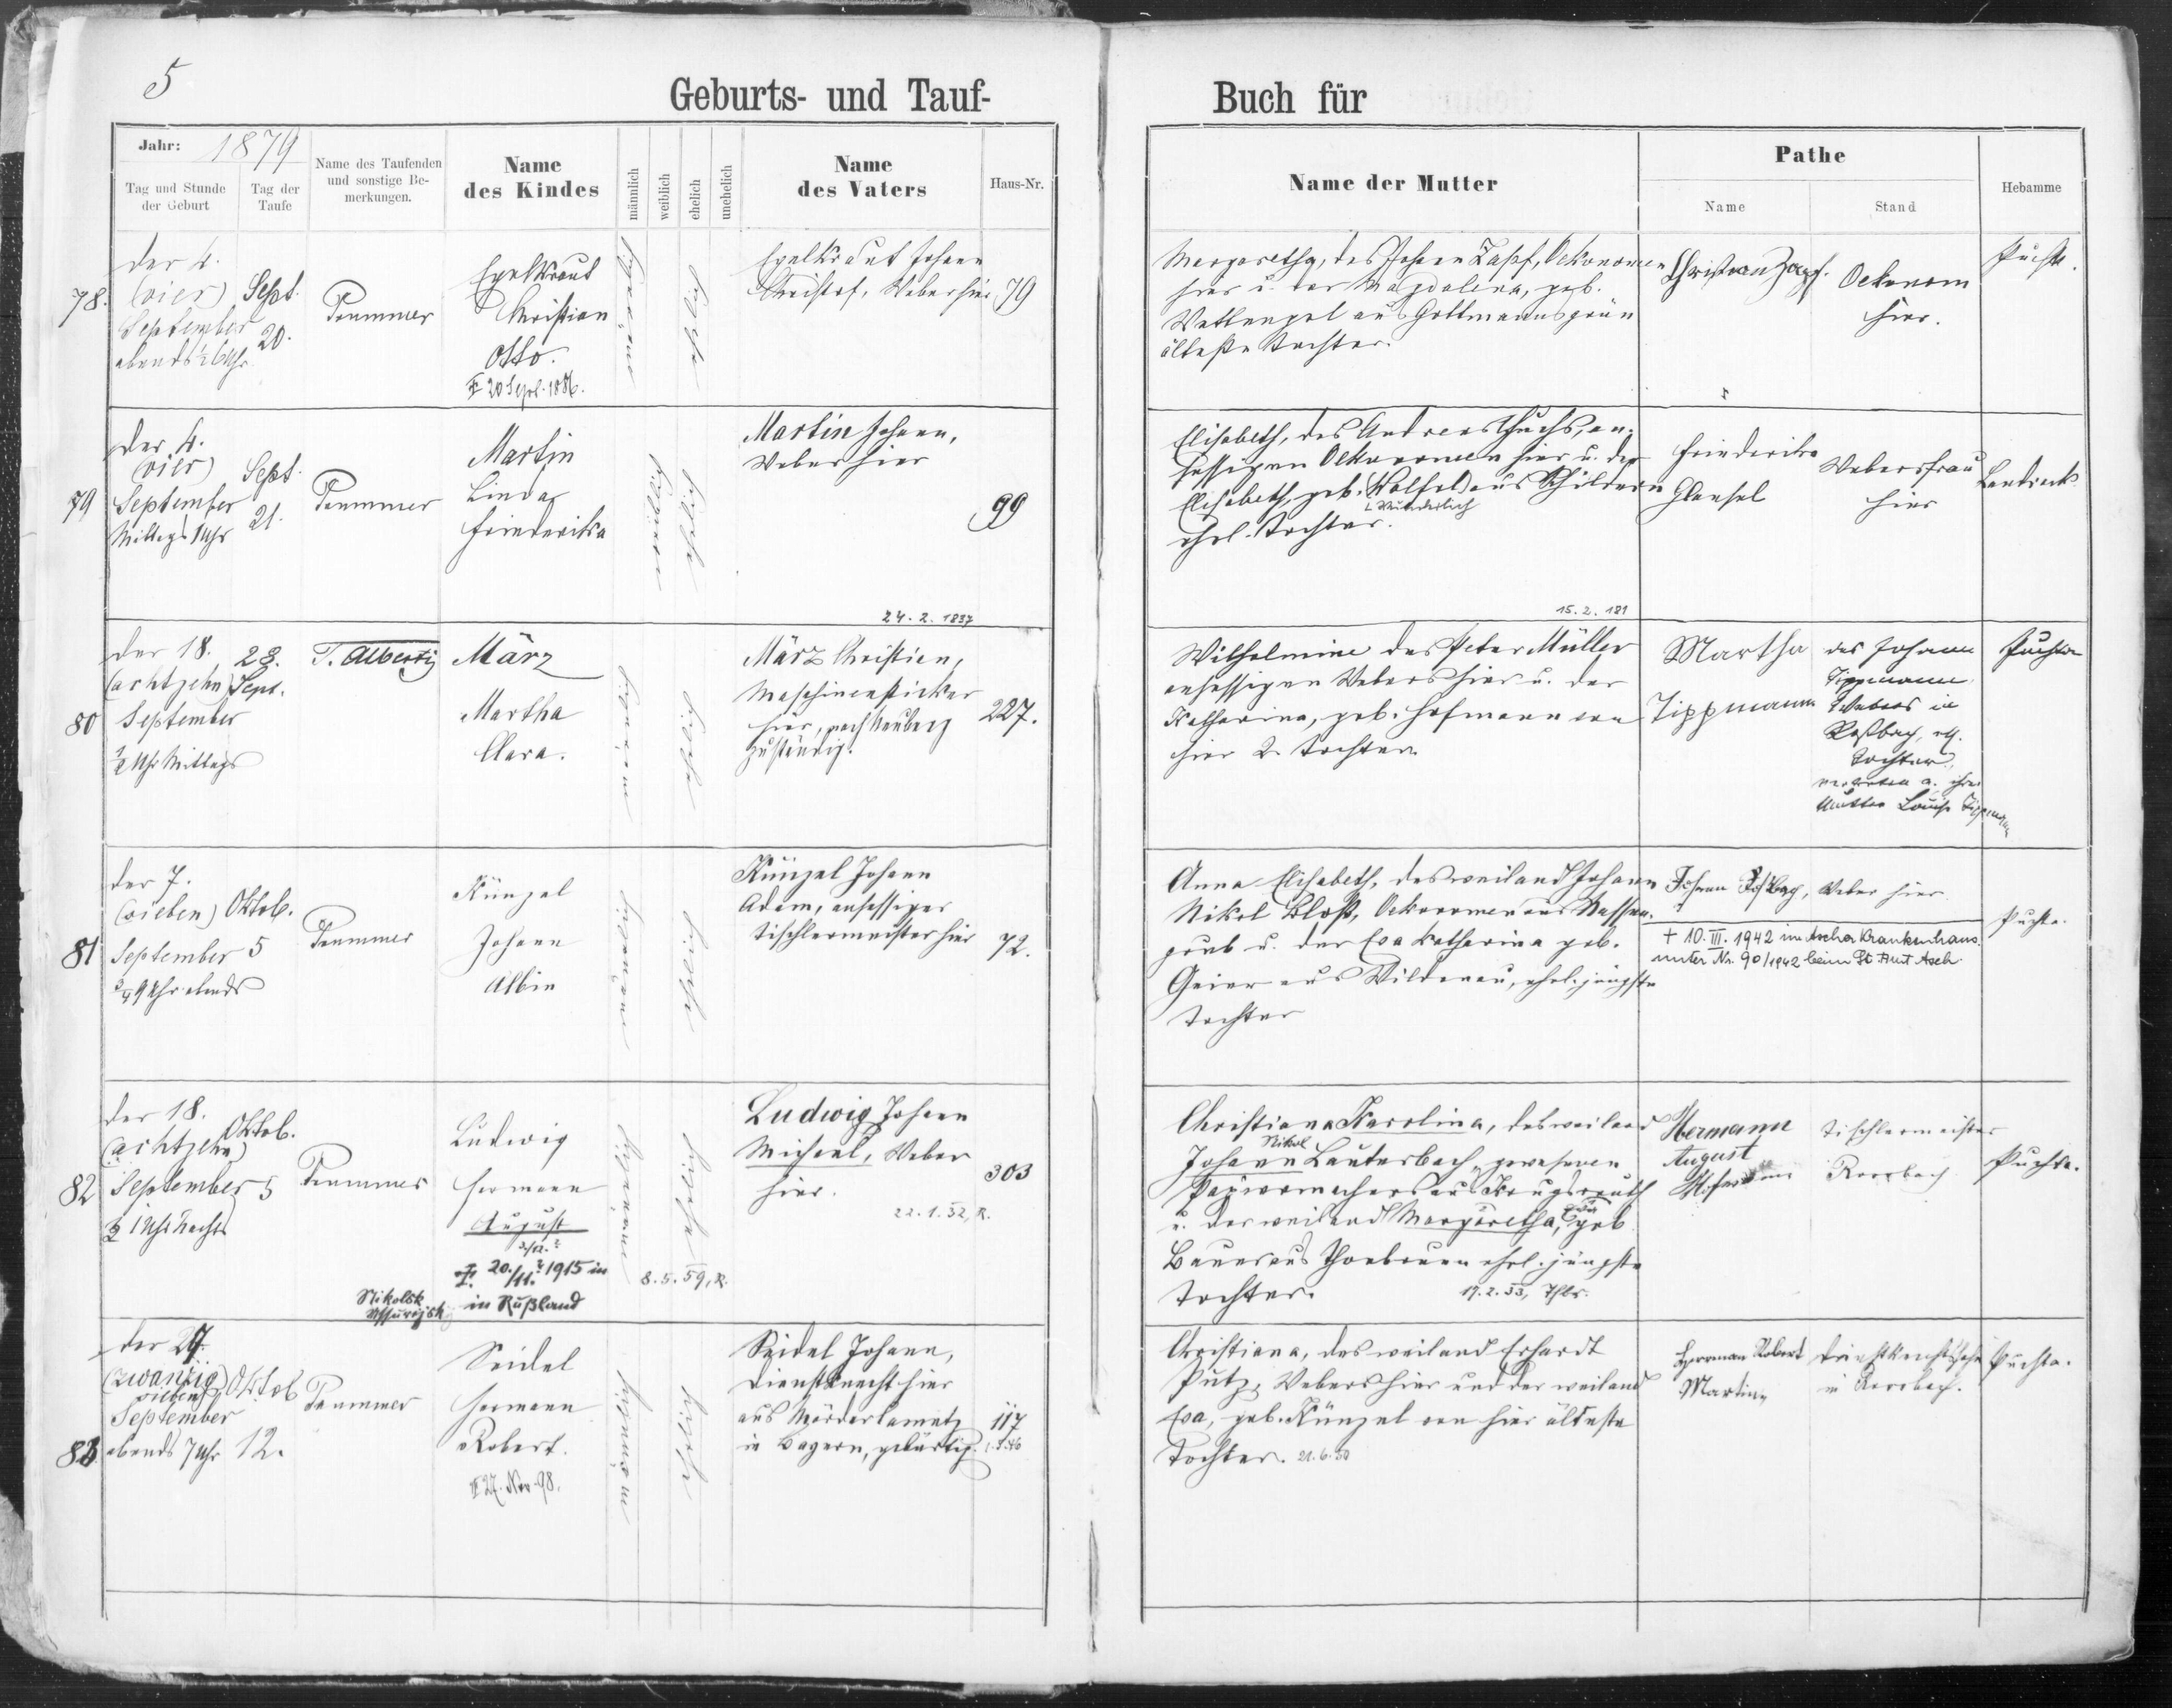 5
Geburts- und Tauf-
Buch für
Jahr: 1879
Tag und Stunde der Geburt
Tag der Taufe
Name des Taufenden und sonstige Bemerkungen.
Name des Kindes
männlich
weiblich
ehelich
unehelich
Name des Vaters
Haus-Nr.
Name der Mutter
Pathe
Name
Stand
Hebamme
78.
der 4.
(vier)
September
abends ½6 Uhr
Sept.
20.
Pommer
Christian
Otto.
20 Sept. 1886.
Johann
Christof, Weber hier
79
Margaretha, des Johann Zapf, Oekonomen
hier u. der Magdalena, geb.
Wettengel aus Gottmannsgrün
älteste Tochter.
Christian Zapf.
Oekonom
hier.
Puchta.
79
der 4.
(vier)
September
Mittags 1 Uhr
Sept.
21.
Pommer
Martin
Linda
Friederika
Martin Johann,
Weber hier
99
Elisabeth, des Andreas Fuchs, an-
sessigen Oekonomen hier u. der
Elisabeth, geb. (Wolfel) aus Schildern
Wunderlich
ehel. Tochter.
Friederika
Webersfrau
hier
80
der 18.
(achtzehn)
September
½ Uhr Mittags
28.
Sept.
T. Alberti
März
Martha
Clara.
24. 2. 1837
März Christian,
Maschinensticker
hier, nach Neuberg
zuständig.
227.
15. 2. 181
Wilhelmine des Peter Müller
ansessigen Webers hier u. der
Katharina, geb. Hofmann von
hier 2. Tochter
Martha
Tippmann
des Johann
Tippmann
Webers in
Roßbach, ehl.
Tochter,
vertreten d. ihre
Mutter Louise Tippmann
Puchta
81
der 7.
(sieben)
September
¾9 Uhr abends
Oktob.
5
Pommer
Künzel
Johann
Albin
Künzel Johann
Adam, ansessiger
Tischlermeister hier
72.
Anna Elisabeth, des weiland Johann
Nikol Bloß, Oekonomen aus Nassen-
grub u. der Eva Katharina geb.
Geier aus Wildenau, ehel. jüngste
Tochter
Johann
Weber hier
+ 10. III. 1942 im Ascher Krankenhaus
unter Nr. 90/1942 beim St Amt Asch
Puchta.
82
der 18.
(achtzehn)
September
½ 1 Uhr Nachts
Oktob.
5
Pommer
Ludwig
Hermann
August
20./11. 1915 in
Nikolsk
Ussurijsk
in Rußland
Ludwig Johann
Michael, Weber
hier.
303
22. 1. 52, R.
8. 5. 59, R.
Christiana Karolina, des weiland
Nikol
Johann Lauterbach, gewesenen
aus Krugsreuth
u. der weiland Margaretha, Eva geb
Bauer aus Thonbrunn ehel. jüngste
Tochter.
19. 2. 53,
Hermann
August
Tischlermeister
Rossbach
Puchta.
83
der 27.
(zwanzig
sieben)
September
abends 7 Uhr
Oktob
12.
Pommer
Seidel
Hermann
Robert.
27. Nov. 98.
Seidel Johann,
Dienstknecht hier
aus Mördlameritz
in Bayern, gebürtig.
117
Christiana, des weiland Erhardt
Putz, Webers hier und der weiland
Eva, geb. Künzel von hier älteste
Tochter. 21. 6. 50
Herrman Robert
Martin
in Rossbach.
Puchta.